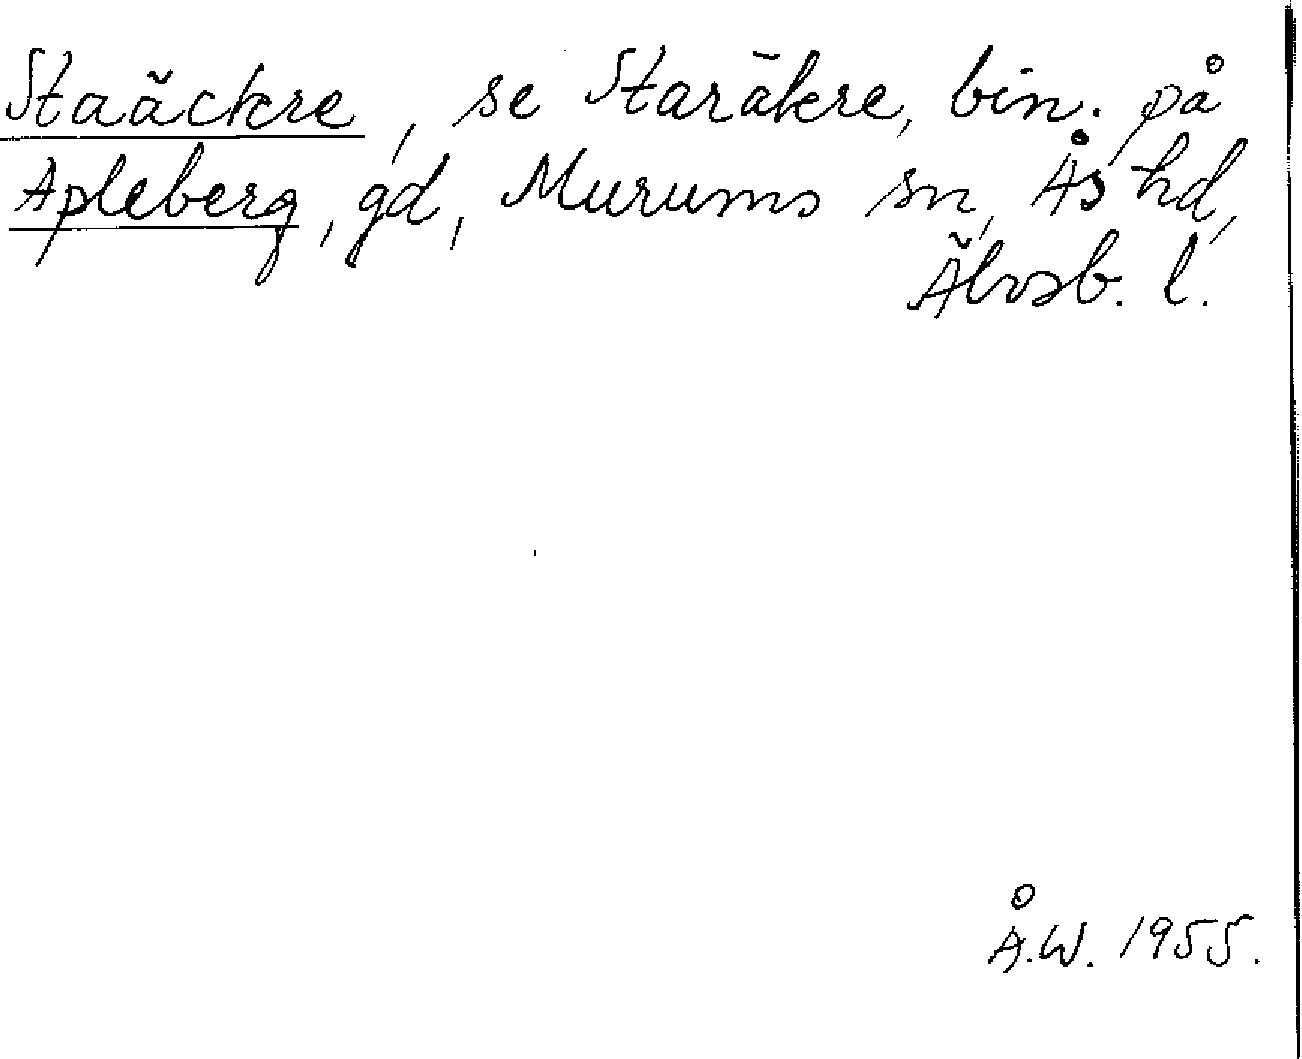 Staäckre, se Staräkre, bin. på
Apleberg, gd, Murums sn, Ås hd,
Älvsb. l.
Å.W. 1955.